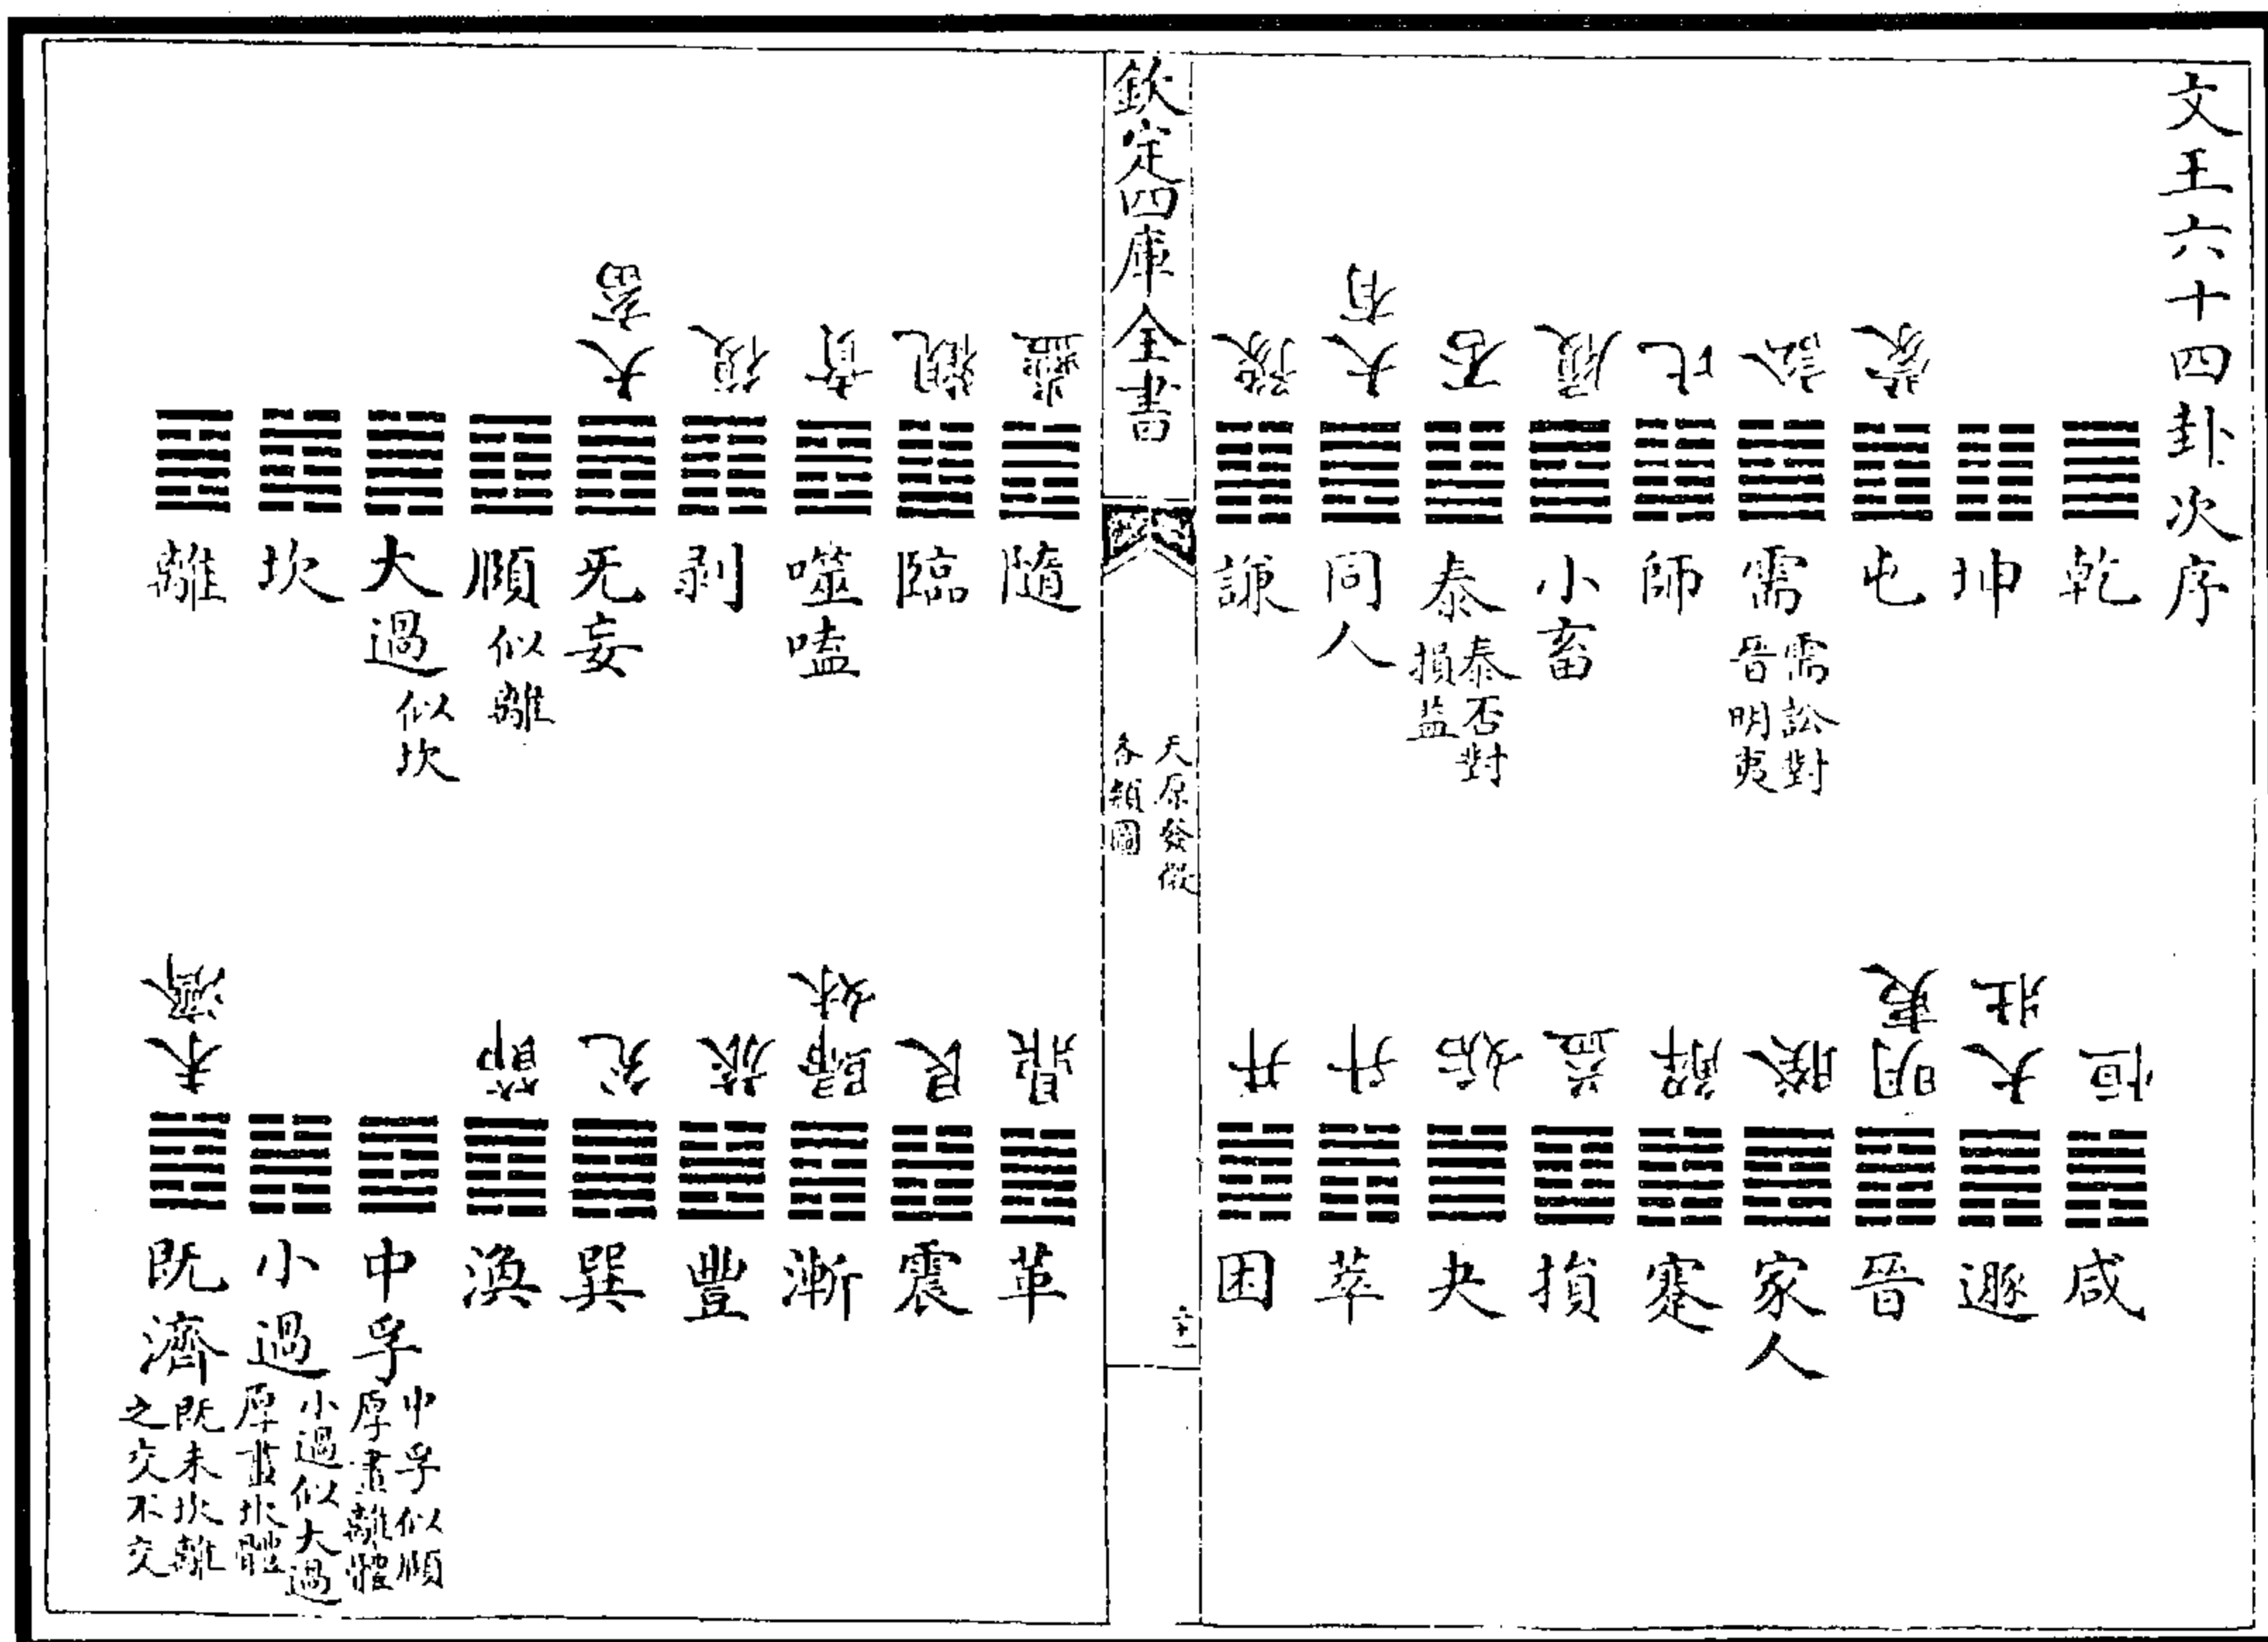 文王六十四卦次序
乾
坤
蒙
屯
訟
需
需訟對
晉明夷
比
師
履
小畜
否
泰
泰否對
損益
大有
同人
豫
謙
恒
咸
大壯
遯
明夷
晉
睽
家人
解
蹇
益
損
姤
夬
升
萃
井
困
欽定四庫全書
天原發微
各類圖
六十一
蠱
隨
觀
臨
賁
噬嗑
復
剥
大畜
无妄
頤
似離
大過
似坎
坎
離
鼎
革
艮
震
歸妹
漸
旅
豐
兊
巽
節
渙
中孚
中孚似頤
厚畫離體
小過
小過似大過
厚畫坎體
未濟
既濟
既未坎離
之交不交